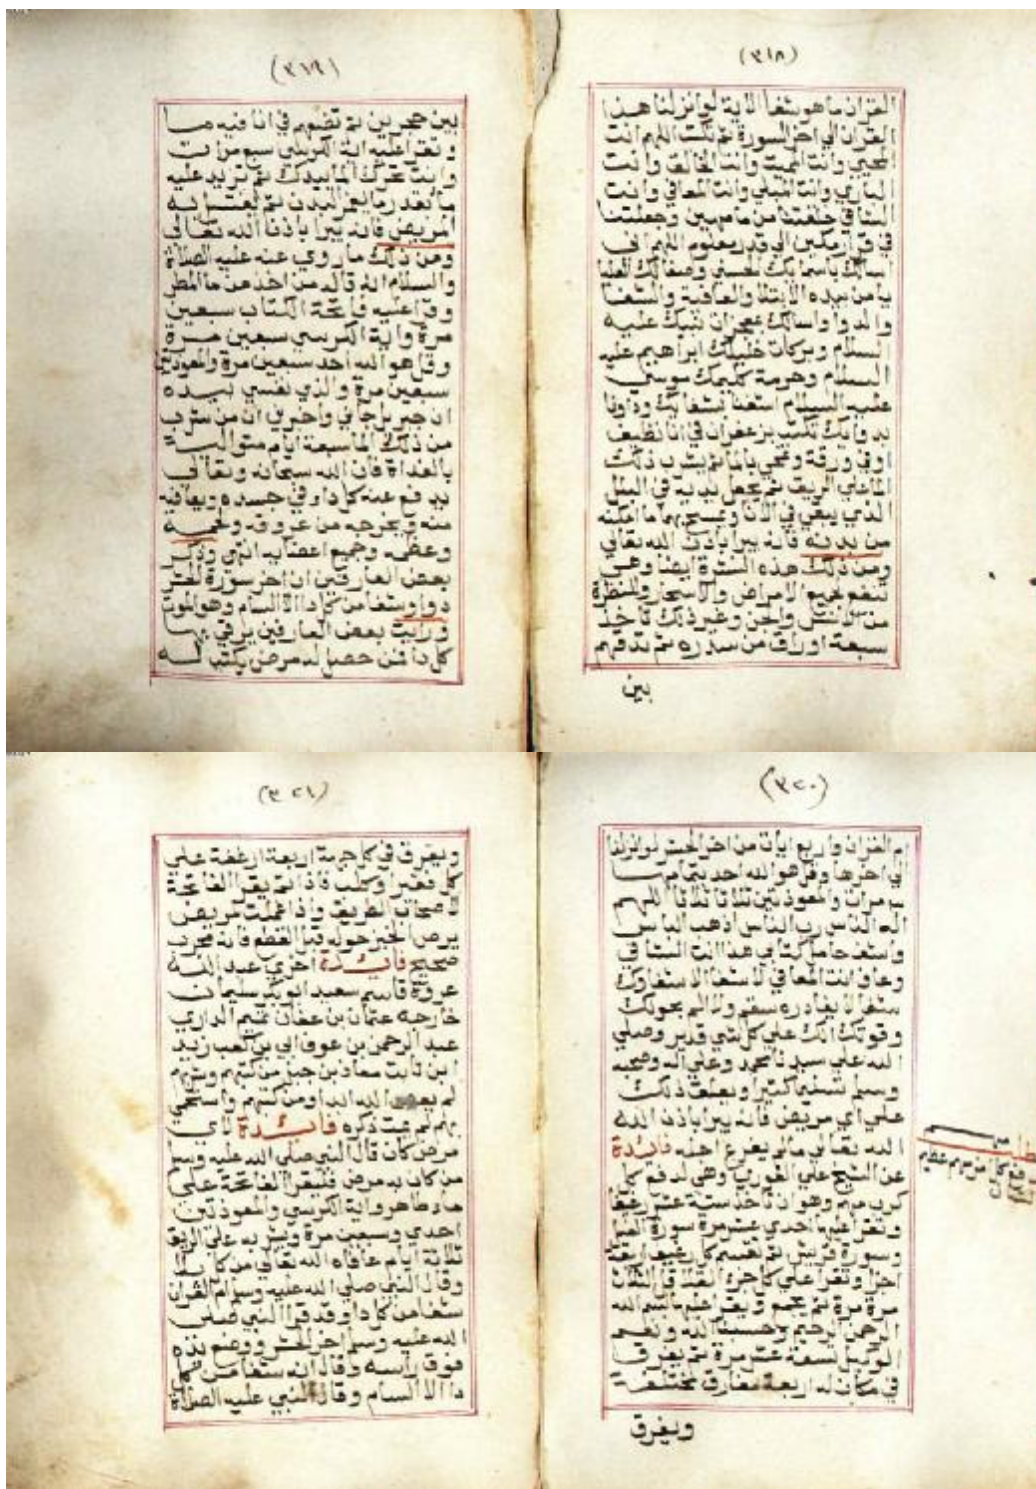 (٣١٨)
القران ما هو شفا الاية لو انزلنا هذا
القران الي اخر السورة ثم تكتب اللهم انت
المحيي وانت المميت وانت الخالق وانت
الباري وانت المبتلي وانت المعافي وانت
الشافي خلقتنا من ما مهين وجعلتنا
في قرار مكين الي قدر معلوم اللهم اني
اسالك باسمايك الحسني وصفاتك العليا
يا من بيده الابتلا والعافية والشفا
والدوا واسالك بمعجزات نبيك عليه
السلام وبركات خليلك ابراهيم عليه
السلام وحرمة كليمك موسي
عليه السلام اشفنا بشفايك وداونا
بدوايك تكتب بزعفران في انا نظيف
او في ورقة وتمحي بالما ثم يشرب ذلك
الما علي الريق ثم يجعل يديه في البلل
الذي يبقي في الانا ويمسح بهما ما امكنه
من بدنه فانه يبرا باذن الله تعالي
ومن ذلك هذه النشرة ايضا وهي
تنفع لجميع الامراض والاسحار والنظرة
من الانس والجن وغير ذلك تاخذ
سبعة اوراق من سدره ثم تدقهم
بين
(٣١٩)
بين حجرين ثم تضعهم في انا فيه ما
وتقرا عليه اية الكرسي سبع مرات
وانت تحرك الما بيدك ثم تزيد عليه
ما بقدر ما يعم البدن ثم يغتسل به
المريض فانه يبرا باذن الله تعالي
ومن ذلك ما روي عنه عليه الصلاة
والسلام انه قال من اخذ من ما المطر
وقرا عليه فاتحة الكتاب سبعين
مرة واية الكرسي سبعين مرة
وقل هو الله احد سبعين مرة والمعوذتين
سبعين مرة والذي نفسي بيده
ان جبريل جاني واخبرني ان من شرب
من ذلك الما سبعة ايام متوالية
بالغداة فان الله سبحانه وتعالي
يدفع عنه كل دا في جسده ويعافيه
منه ويخرجه من عروقه ولحمه
وعظمه وجميع اعضايه انتهي وذكر
بعض العارفين ان اخر سورة الحشر
دوا وشفا من كل دا الا السام وهو الموت
ورايت بعض العارفين يرقي بها
كل دا فمن حصل له مرض يكتب له
(٣٢٠)
ام القران واربع ايات من اخر الحشر لو انزلنا
الي اخرها وقل هو الله احد بتمامها
مرات والمعوذتين ثلاثا ثلاثا اللهم
اله الناس رب الناس اذهب الباس
واشف حامل كتابي هذا انت الشافي
وعاف وانت المعافي لا شفا الا شفاوك
شفا لا يغادره سقم ولا الم بحولك
وقوتك انك علي كل شي قدير وصلي
الله علي سيدنا محمد وعلي اله وصحبه
وسلم تسليما كثيرا ويعلق ذلك
علي اي مريض فانه يبرا باذن الله
الله تعالي مالم يفرغ اجله فائدة
عن الشيخ علي الغوري وهي لدفع كل
كرب مهم وهو ان تاخذ ستة عشر رغيفا
وتقرا عليهم احدي عشر مرة سورة الفيل
وسورة قريش ثم تقسم كل رغيف اربعة
اجزا وتقرا علي كل جزء الفلاقل الثلاث
مرة مرة ثم يجمع ويقرا عليه بسم الله
الرحمن الرحيم وحسبنا الله ونعم
الوكيل تسعة عشر مرة ثم يفرقها
في مكان له اربعة مفارق مختلفة
ويفرق
(٣٢١)
ويفرق في كل جهة اربعة ارغفة علي
كل فقير وكلب فاذا تم يقرا الفاتحة
لاصحاب الطريق واذا عملت لمريض
يرص الخبز حوله قبل القطع فانه مجرب
صحيح فائدة اخري عبد الله
عروة قاسم سعيد ابو بكر سليمان
خارجه عثمان بن عفان تميم الداري
عبد الرحمن بن عوف ابي بن كعب زيد
ابن ثابت معاذ بن جبل من كتبهم وشربهم
لم الله ابدا ومن كتبهم واستحمي
بهم لم يمت ذكره فائدة لاي
مرض كان قال النبي صلي الله عليه وسلم
من كان به مرض فليقرا الفاتحة علي
ماء طاهر واية الكرسي والمعوذتين
احدي وسبعين مرة ويشربه علي الريق
ثلاثة ايام عافاه الله تعالي من كل بلا
وقال النبي صلي الله عليه وسلم ام القران
شفا من كل دا وقد قرا النبي صلي
الله عليه وسلم اخر الحشر ووضع يده
فوق راسه وقال انه شفا من كل
دا الا السام وقال النبي عليه الصلاة